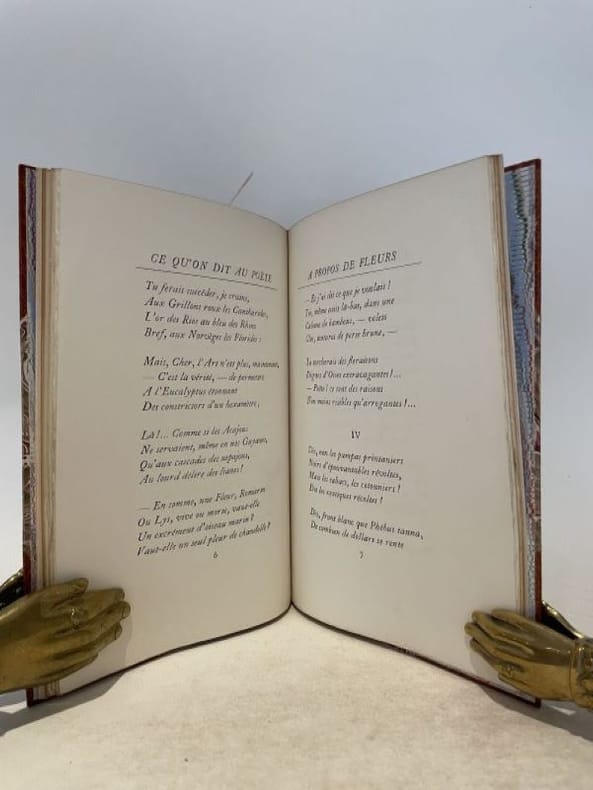 CE QU'ON DIT AU POÈTE
Tu ferais succéder, je crains,
Aux Grillons roux les Cantharides,
L'or des Rios au bleu des Rhins
Bref, aux Norvèges les Florides :
Mais, Cher, l'Art n'est plus, maintenant,
— C'est la vérité, — de permettre
A l'Eucalyptus étonnant
Des constrictors d'un hexamètre,
Là !... Comme si les Acajous
Ne servaient, même en nos Guyanes,
Qu'aux cascades des sapajous,
Au lourd délire des lianes !
— En somme, une Fleur, Romarin
Ou Lys, vive ou morte, vaut-elle
Un excrément d'oiseau marin ?
Vaut-elle un seul pleur de chandelle ?
6
A PROPOS DE FLEURS
— Et j'ai dit ce que je voulais !
Toi, même assis là-bas, dans une
Cabane de bambous, — volets
Clos, tentures de perse brune, —
Tu torcherais des floraisons
Dignes d'Oises extravagantes !...
— Poète ! ce sont des raisons
Non moins risibles qu'arrogantes !...
IV
Dis, non les pampas printaniers
Noirs d'épouvantables révoltes,
Mais les tabacs, les cotonniers !
Dis les exotiques récoltes !
Dis, front blanc que Phébus tanna,
De combien de dollars se rente
7